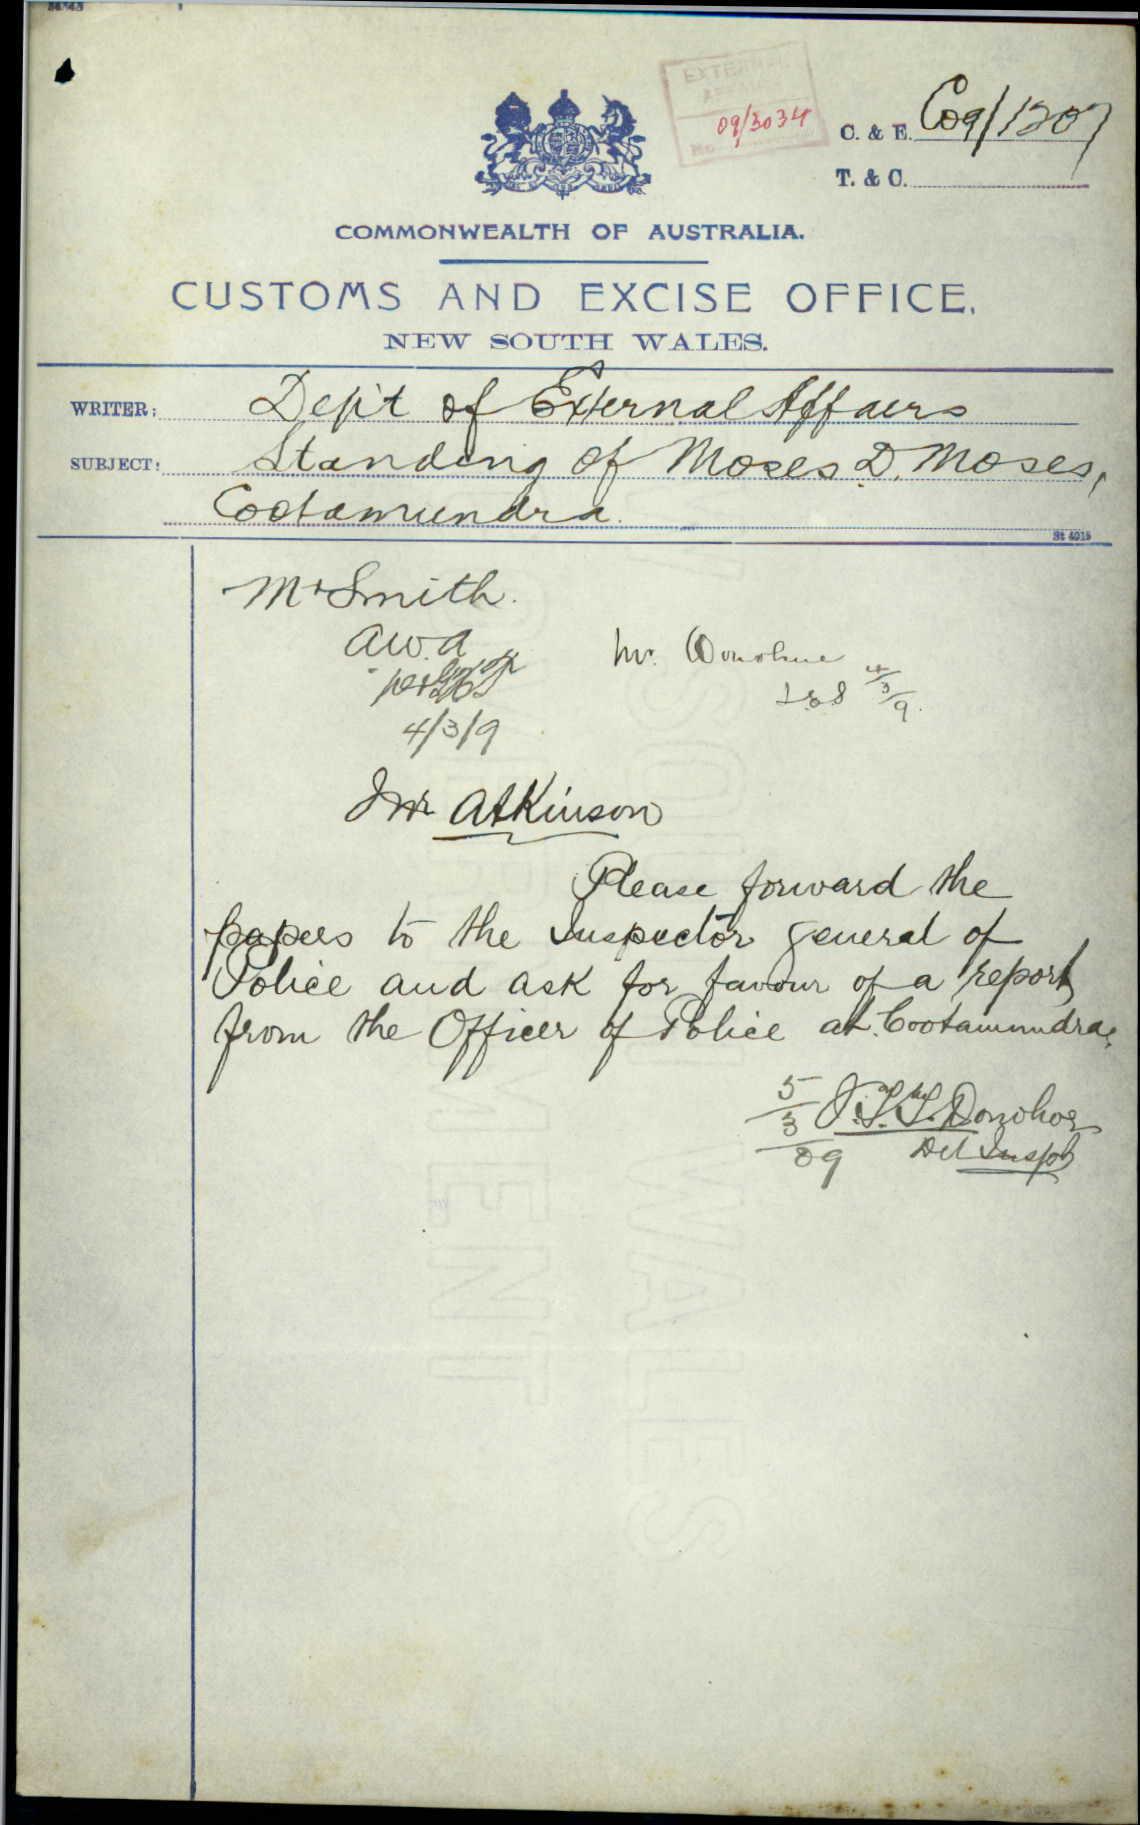 EXTERNAL
AFFAIRS
09/3034
No
C. & E. C09/1207
T. & C.
COMMONWEALTH OF AUSTRALIA.
CUSTOMS AND EXCISE OFFICE,
NEW SOUTH WALES.
WRITER: Dep't of External Affairs
SUBJECT: Standing of Moses D. Moses,
Cootamundra.
St 4015
Mr Smith.
A.W.A
per
4/3/9
Mr. Donohue
4/3/9.
Mr Atkinson
Please forward the
papers to the Inspector General of
Police and ask for favour of a report
from the Officer of Police at Cootamundra.
5/3/09
J.T.T. Donohoe
Det Inspr
NEW SOUTH WALES
GOVERNMENT